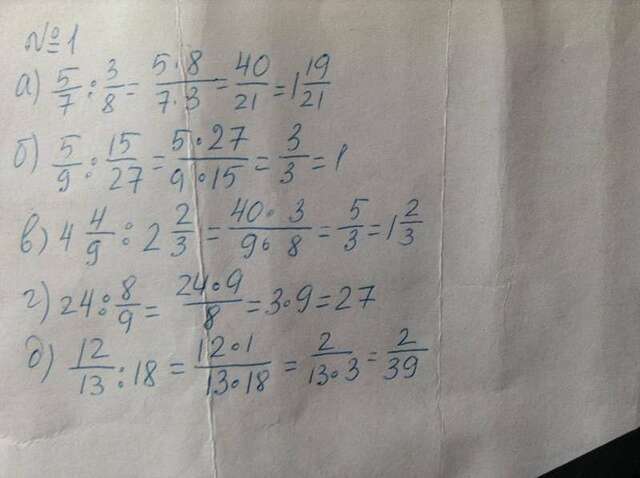 №1
а) 5/7 : 3/8 = 5·8/7·3 = 40/21 = 1 19/21
б) 5/9 : 15/27 = 5·27/9·15 = 3/3 = 1
в) 4 4/9 : 2 2/3 = 40·3/9·8 = 5/3 = 1 2/3
г) 24 : 8/9 = 24·9/8 = 3·9 = 27
д) 12/13 : 18 = 12·1/13·18 = 2/13·3 = 2/39